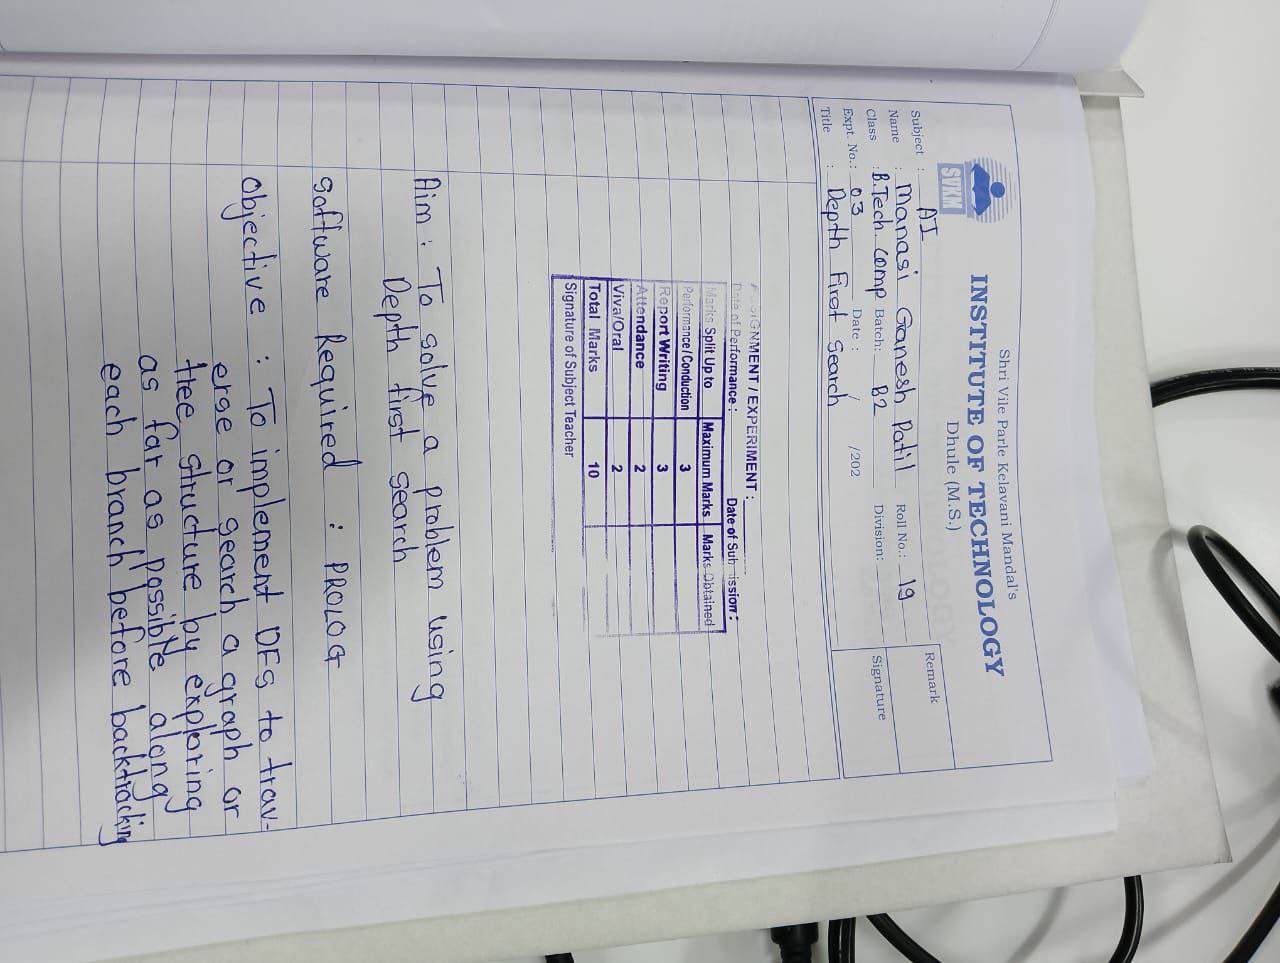 Shri Vile Parle Kelavani Mandal's
INSTITUTE OF TECHNOLOGY
Dhule (M.S.)
SVKM
Subject : AI
Remark
Name : Manasi Ganesh Patil Roll No.: 19
Class : B.Tech. Comp Batch: B2 Division:
Signature
Expt. No.: 03 Date : / /202
Title : Depth First Search
ASSIGNMENT / EXPERIMENT :
Date of Performance : Date of Submission :
Marks Split Up to Maximum Marks Marks Obtained
Performance/Conduction 3
Report Writing 3
Attendance 2
Viva/Oral 2
Total Marks 10
Signature of Subject Teacher
Aim : To solve a problem using
Depth first search
Software Required : PROLOG
Objective : To implement DFS to trav-
erse or search a graph or
tree structure by exploring
as far as possible along
each branch before backtracking